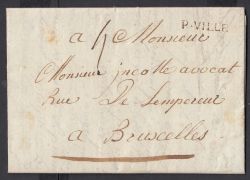 P.VILLE
a Monsieur
Monsieur jacotte avocat
Rue De Lempereur
a Bruxcelles.